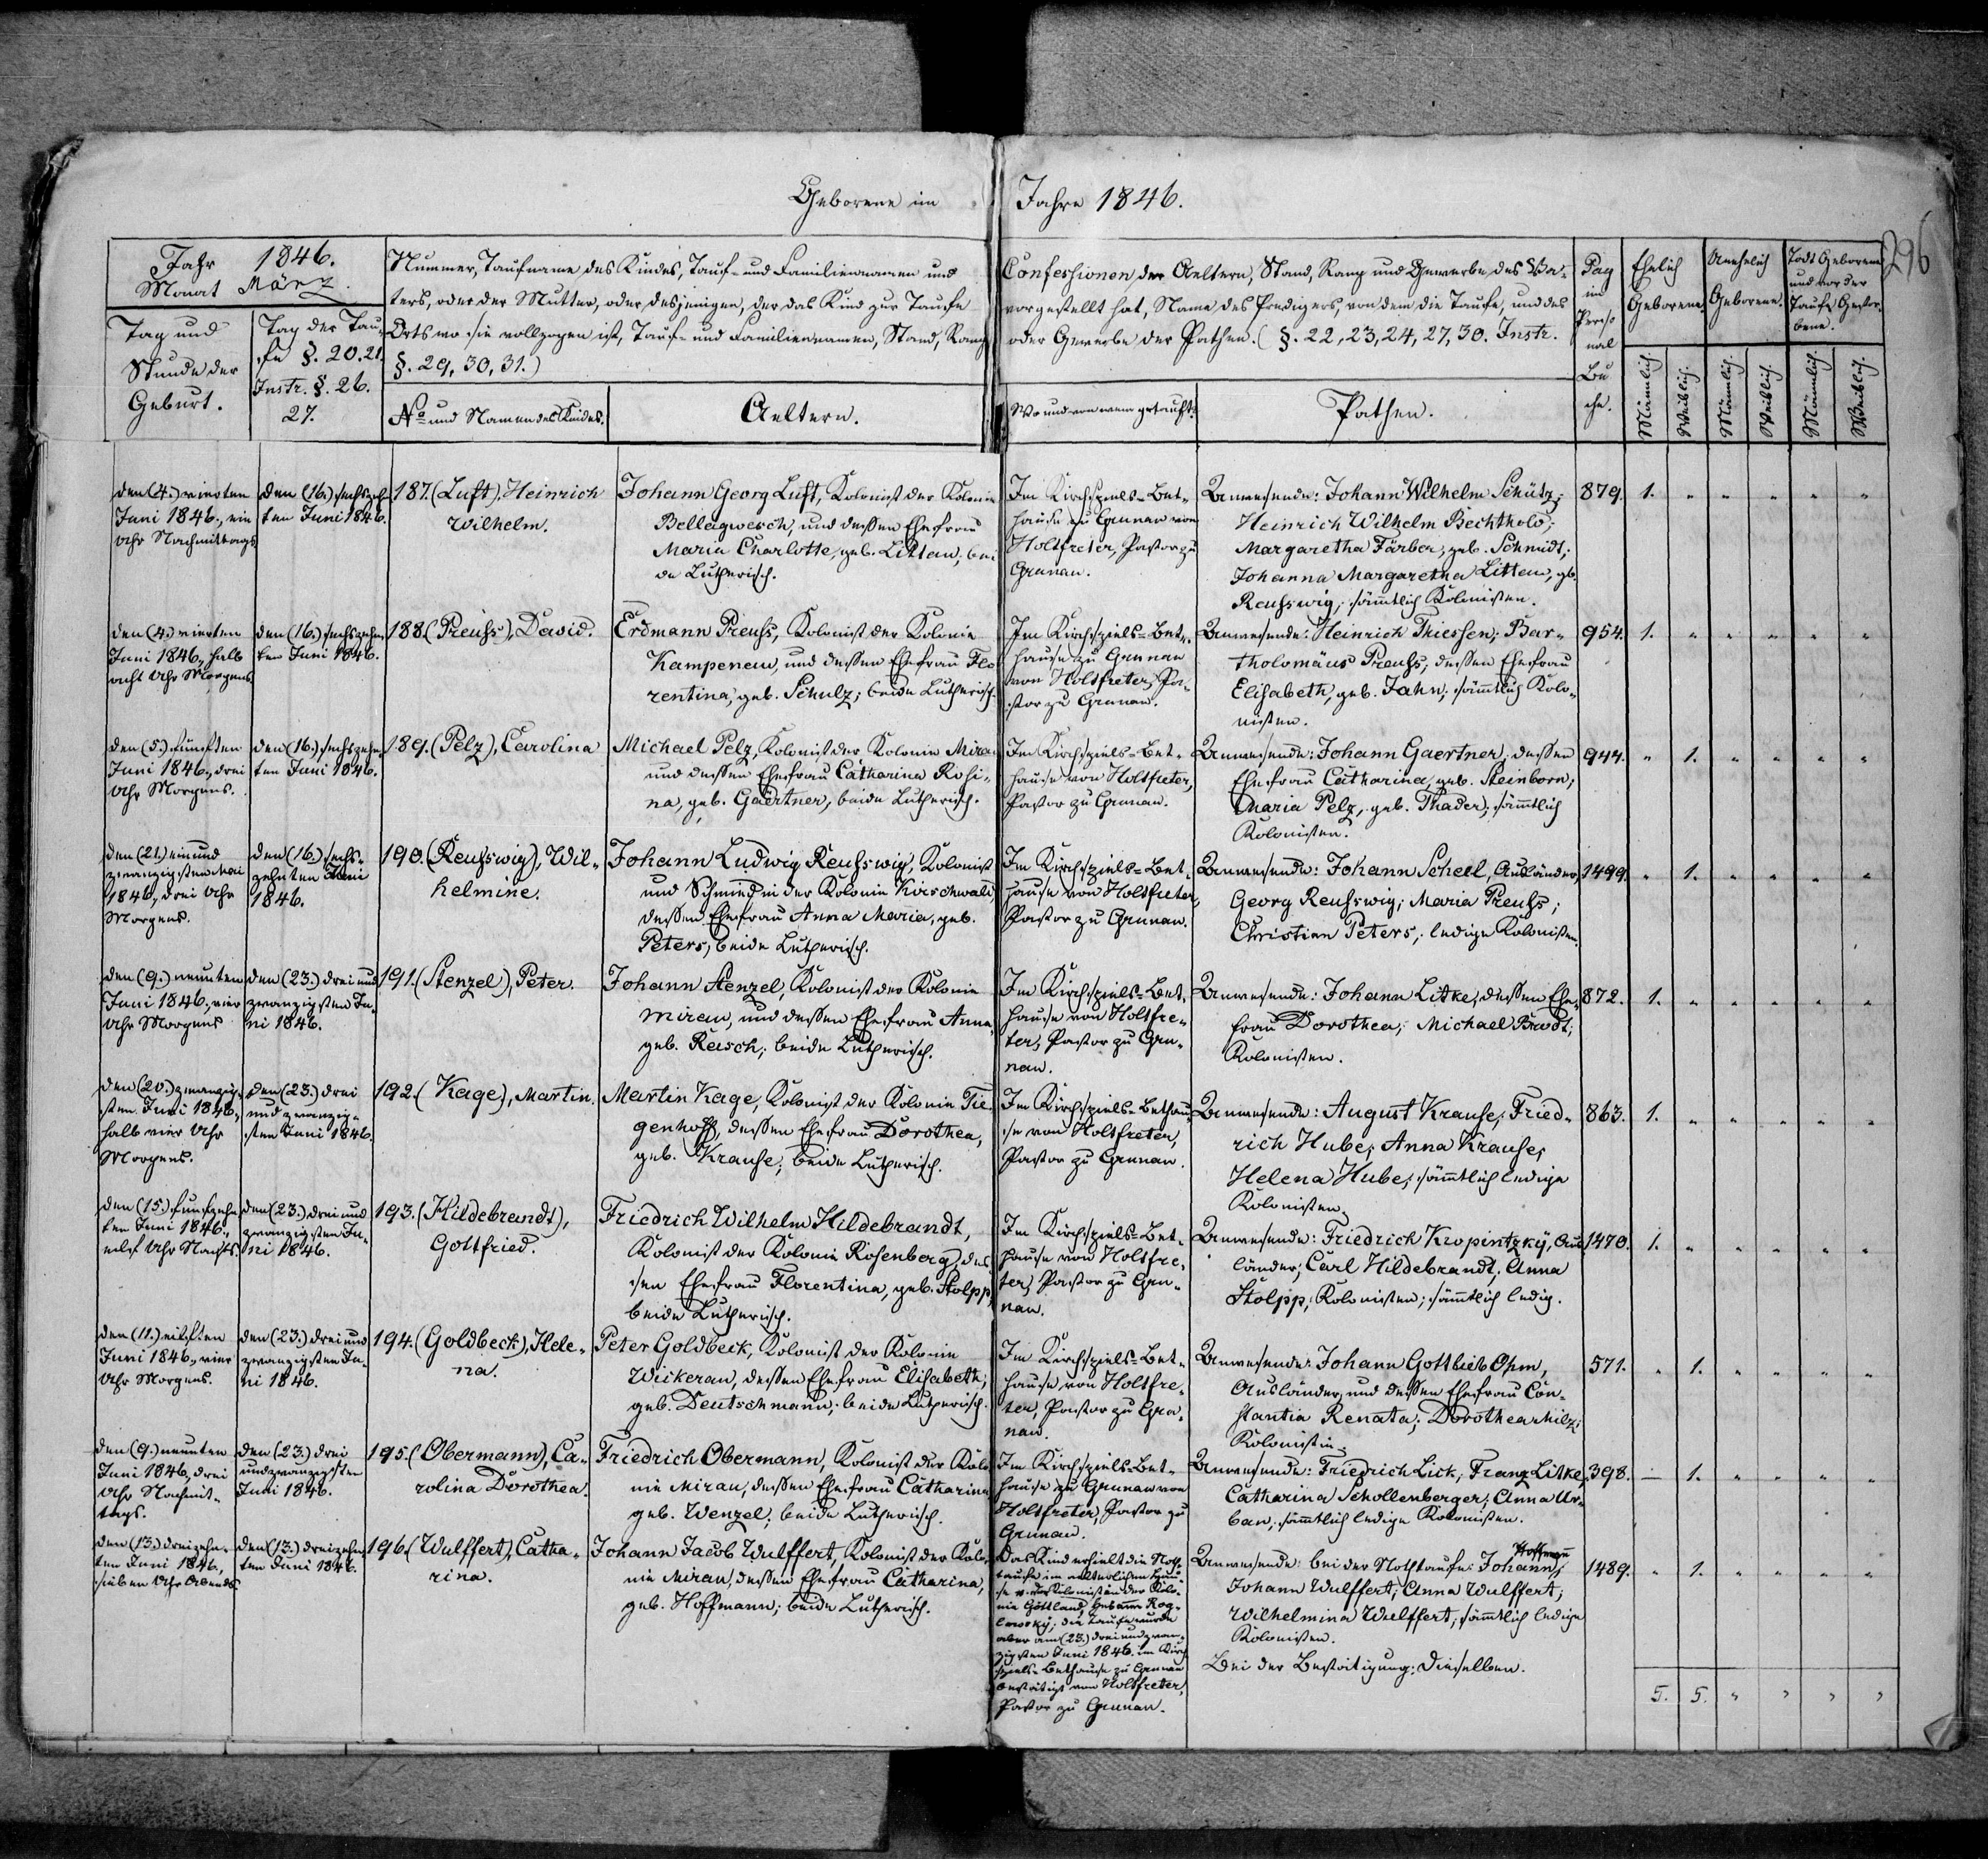 Geborene im Jahre 1846.
296
Jahr 1846.
Monat März.
Tag und
Stunde der
Geburt.
Tag der Tau-
fe §. 20. 21.
Instr. §. 26.
27.
Nummer, Taufname des Kindes, Tauf- und Familiennamen und
ters, oder der Mutter, oder desjenigen, der das Kind zur Taufe
Orts wo sie vollzogen ist, Tauf- und Familiennamen, Stand, Rang
§. 29, 30, 31.)
No und Namen des Kindes.
Aeltern.
Confessionen der Aeltern, Stand, Rang und Gewerbe des Va-
vorgestellt hat, Name des Predigers, von dem die Taufe, und des
oder Gewerbe der Pathen. (§. 22, 23, 24, 27, 30. Instr.
Wo und von wem getauft.
Pathen.
Pag
im
Perso
nal
Bu
che.
Ehelich
Geborene.
Unehelich
Geborene.
Todt Geborene
und vor der
Taufe Gestor-
bene.
Männlich.
Weiblich.
Männlich.
Weiblich.
Männlich.
Weiblich.
den (4.) vierten
Juni 1846., ein
Uhr Nachmittags
den (16.) sechszehn-
ten Juni 1846.
187. (Luft), Heinrich
Wilhelm.
Johann Georg Luft, Kolonist der Kolonie
Bellagwesch, und dessen Ehefrau
Maria Charlotte, geb. Littau, bei
de Lutherisch.
Im Kirchspiels-Bet-
hause zu Grunau von
Holtfreter, Pastor zu
Grunau.
Anwesende: Johann Wilhelm Schütz;
Heinrich Wilhelm Bechthold;
Margaretha Färber, geb. Schmidt;
Johanna Margaretha Littau, gb.
Reuschwig; sämmtlich Kolonisten.
879. 1. " " " " "
den (4.) vierten
Juni 1846, halb
acht Uhr Morgens
den (16.) sechszehn-
ten Juni 1846.
188. (Preuss), David.
Erdmann Preuss, Kolonist der Kolonie
Kampenau, und dessen Ehefrau Flo
rentina, geb. Schulz; beide Lutherisch.
Im Kirchspiels-Bet-
hause zu Grunau
von Holtfreter, Pa-
stor zu Grunau.
Anwesende: Heinrich Thiessen; Bar-
tholomäus Preuss, dessen Ehefrau
Elisabeth, geb. Jahn; sämmtlich Kolo-
nisten.
954. 1. " " " " "
den (5.) fünften
Juni 1846., drei
Uhr Morgens.
den (16.) sechszehn-
ten Juni 1846.
189. (Pelz), Carolina
Michael Pelz, Kolonist der Kolonie Mirau
und dessen Ehefrau Catharina Rosi-
na, geb. Gaertner, beide Lutherisch.
Im Kirchspiels-Bet-
hause von Holtfreter,
Pastor zu Grunau.
Anwesende: Johann Gaertner; dessen
Ehefrau Catharina, geb. Steinborn;
Maria Pelz, geb. Thader; sämmtlich
Kolonisten.
944. " 1. " " " "
den (21.) ein und
zwanzigsten Mai
1846., drei Uhr
Morgens.
den (16.) sechs-
zehnten Juni
1846.
190. (Reusswig), Wil-
helmine.
Johann Ludwig Reusswig, Kolonist
und Schmied in der Kolonie Kirschwald,
dessen Ehefrau Anna Maria, geb.
Peters, beide Lutherisch.
Im Kirchspiels-Bet-
hause von Holtfreter,
Pastor zu Grunau.
Anwesende: Johann Scheel, Ausländer,
Georg Reusswig; Maria Preuss;
Christian Peters, ledige Kolonisten.
1499. " 1. " " " "
den (9.) neunten
Juni 1846., vier
Uhr Morgens
den (23.) drei und
zwanzigsten Ju-
ni 1846.
191. (Stenzel), Peter.
Johann Stenzel, Kolonist der Kolonie
Mirau, und dessen Ehefrau Anna
geb. Rasch; beide Lutherisch.
Im Kirchspiels-Bet-
hause von Holtfre-
ter, Pastor zu Gru-
nau.
Anwesende: Johann Litke, dessen Ehe-
frau Dorothea; Michael Bredt;
Kolonisten.
872. 1. " " " " "
den (20.) zwanzig-
sten Juni 1846,
halb vier Uhr
Morgens.
den (23.) drei
und zwanzig-
sten Juni 1846.
192. (Kage), Martin.
Martin Kage, Kolonist der Kolonie Tie-
genhoff, dessen Ehefrau Dorothea,
geb. Krause; beide Lutherisch.
Im Kirchspiels-Bethau-
se von Holtfreter,
Pastor zu Grunau.
Anwesende: August Krause; Fried-
rich Hube; Anna Krause;
Helena Hube; sämmtlich ledige
Kolonisten.
863. 1. " " " " "
den (15.) fünfzehn
ten Juni 1846.,
eilf Uhr Nachts.
den (23.) drei und
zwanzigsten Ju-
ni 1846.
193. (Hildebrandt),
Gottfried.
Friedrich Wilhelm Hildebrandt,
Kolonist der Kolonie Rosenberg, des-
sen Ehefrau Florentina, geb. Stolpp,
beide Lutherisch.
Im Kirchspiels-Bet-
hause von Holtfre-
ter, Pastor zu Gru-
nau.
Anwesende: Friedrich Kropintzky, Aus
länder; Carl Hildebrandt; Anna
Stolpp; Kolonisten; sämmtlich ledig.
1470. 1. " " " " "
den (11.) eilften
Juni 1846., vier
Uhr Morgens.
den (23.) drei und
zwanzigsten Ju-
ni 1846.
194. (Goldbeck), Hele-
na.
Peter Goldbeck, Kolonist der Kolonie
Wickerau, dessen Ehefrau Elisabeth,
geb. Deutschmann; beide Lutherisch.
Im Kirchspiels-Bet-
hause von Holtfre-
ter, Pastor zu Gru-
nau.
Anwesende: Johann Gottlieb Ohm,
Ausländer, und dessen Ehefrau Con-
stantia Renata; Dorothea Milz;
Kolonistin.
571. " 1. " " " "
den (9.) neunten
Juni 1846, drei
Uhr Nachmit-
tags.
den (23.) drei
und zwanzigsten
Juni 1846.
195. (Obermann), Ca-
rolina Dorothea.
Friedrich Obermann, Kolonist der Kolo
nie Mirau, dessen Ehefrau Catharina
geb. Wenzel; beide Lutherisch.
Im Kirchspiels-Bet-
hause zu Grunau von
Holtfreter, Pastor zu
Grunau.
Anwesende: Friedrich Lick; Franz Litke;
Catharina Schollenberger; Anna Ur-
ban; sämmtlich ledige Kolonisten.
398. — 1. " " " "
den (13.) dreizehn-
ten Juni 1846,
sieben Uhr Abends
den (13.) dreizehn-
ten Juni 1846.
196. (Wulffert), Catha-
rina.
Johann Jacob Wulffert, Kolonist der Kolo-
nie Mirau, dessen Ehefrau Catharina,
geb. Hoffmann; beide Lutherisch.
Das Kind erhielt die Noth-
taufe im aelterlichen Hau-
se v. der Kolonistin der Kolo-
nie Göttland, Hebamme Rog-
lewsky; die Taufe wurde
aber am (23.) drei und zwan-
zigsten Juni 1846. im Kirch
spiels-Bethause zu Grunau
bestätigt von Holtfreter,
Pastor zu Grunau.
Anwesende: bei der Nothtaufe: Johann Hoffmann;
Johann Wulffert; Anna Wulffert;
Wilhelmina Wulffert; sämmtlich ledige
Kolonisten.
Bei der Bestätigung: Dieselben.
1489. " 1. " " " "
5. 5. " " " "